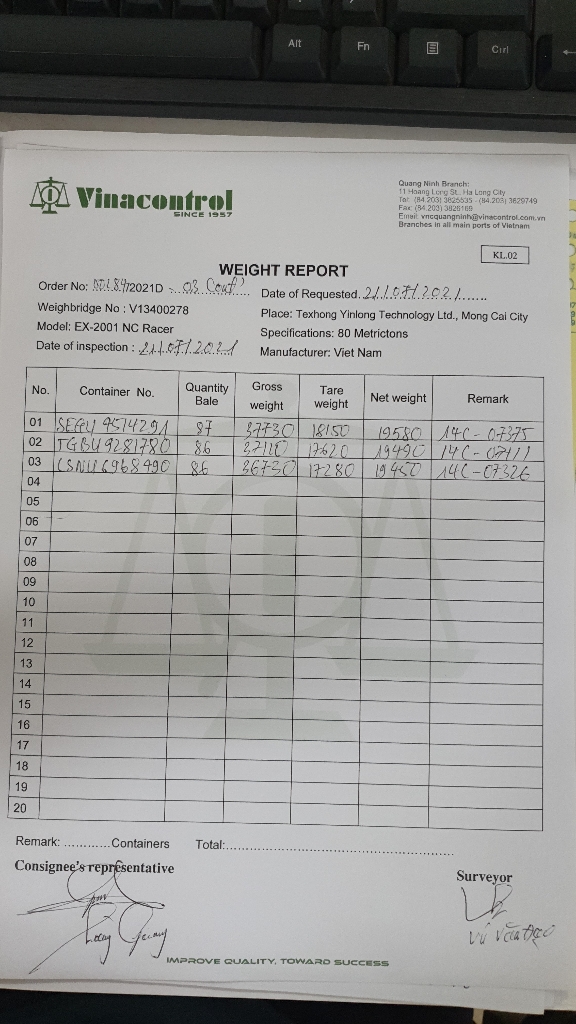 Alt
Fn
Ctrl
Vinacontrol
SINCE 1957
Quang Ninh Branch:
11 Hoang Long St., Ha Long City
Tel: (84.203) 3825535 - (84.203) 3829749
Fax: (84.203) 3826169
Email: vncquangninh@vinacontrol.com.vn
Branches in all main ports of Vietnam
KL.02
WEIGHT REPORT
Order No: /2021D - 03 Cont'
Date of Requested 21/07/2021
Weighbridge No : V13400278
Place: Texhong Yinlong Technology Ltd., Mong Cai City
Model: EX-2001 NC Racer
Specifications: 80 Metrictons
Date of inspection : 21/07/2021
Manufacturer: Viet Nam
No. Container No. Quantity Bale Gross weight Tare weight Net weight Remark
01 SEGU 9574291 87 37730 18150 19580 14C - 07375
02 TGBU 9281780 86 37110 17620 19490 14C - 07111
03 CSNU 6968490 86 36730 17280 19450 14C - 07326
04
05
06
07
08
09
10
11
12
13
14
15
16
17
18
19
20
Remark: ............Containers Total:..........................................................
Consignee's representative
Surveyor
Vũ Văn Đạo
IMPROVE QUALITY, TOWARD SUCCESS